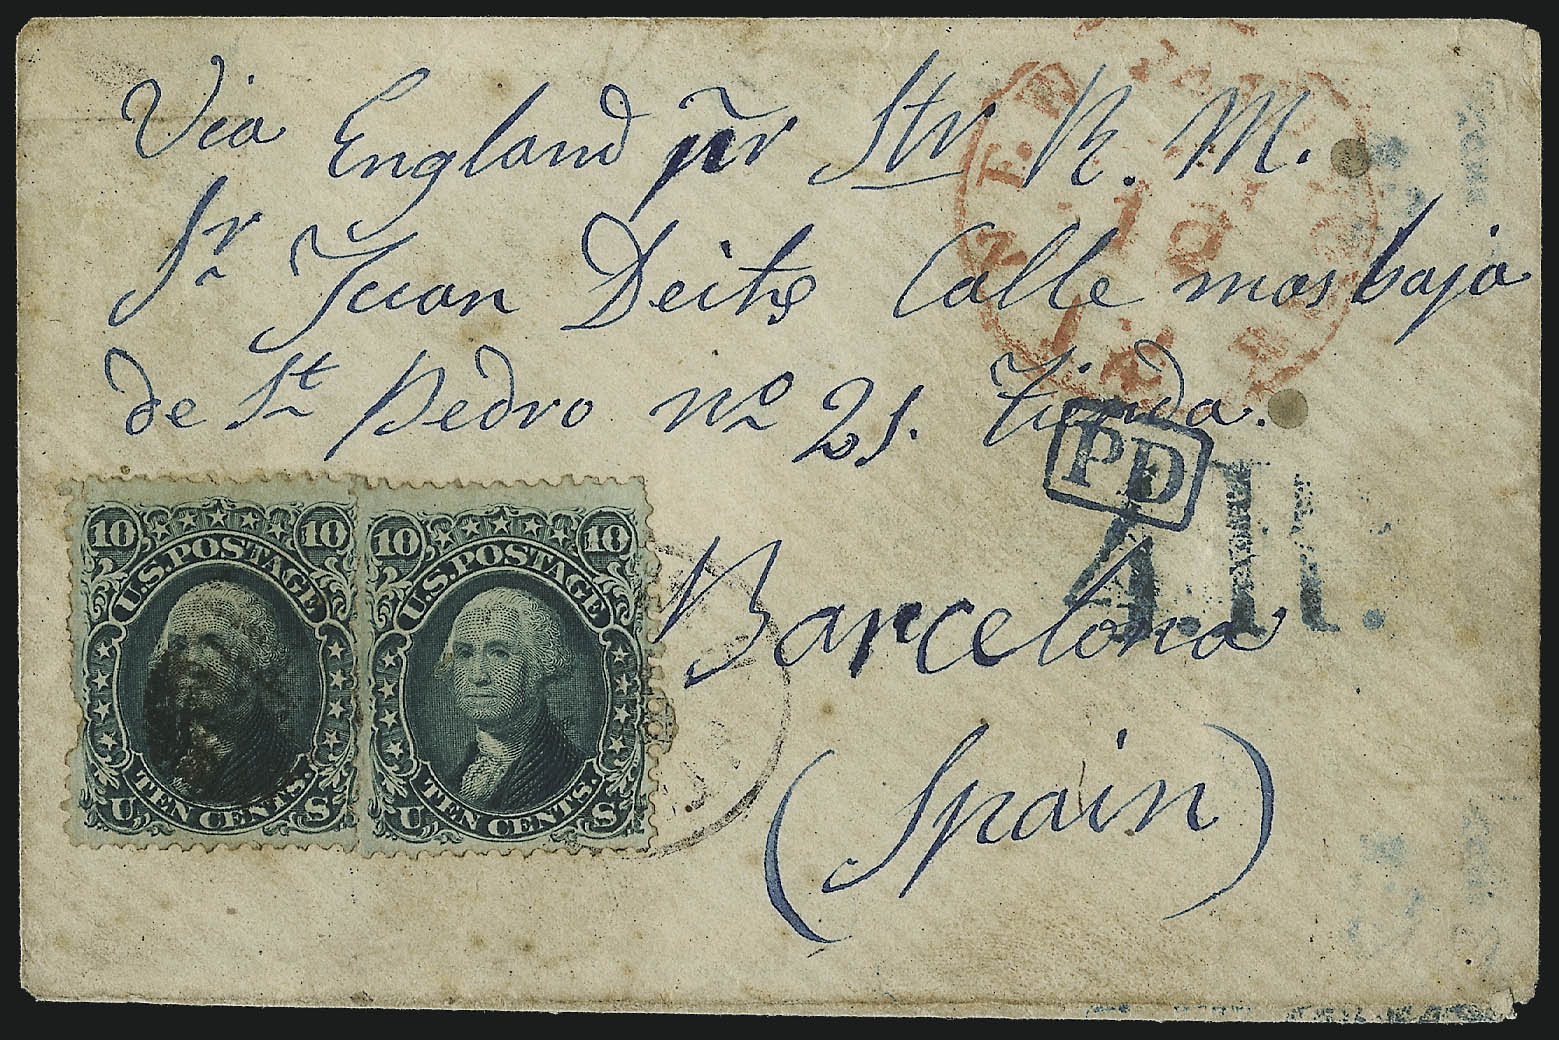 Via England pr Str R. M.
Sr Juan Deits Calle mas baja
de St Pedro no 21. Tienda.
PD
A.R.
Barcelona
(Spain)
10 10
U.S. POSTAGE
TEN CENTS.
U S
10 10
U.S. POSTAGE
TEN CENTS.
U S